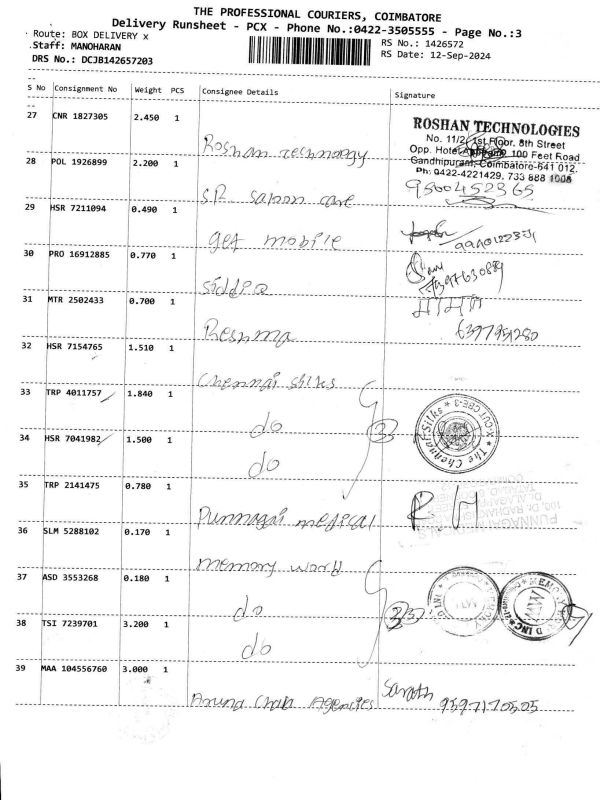 THE PROFESSIONAL COURIERS, COIMBATORE
Delivery Runsheet - PCX - Phone No.:0422-3505555 - Page No.:3
Route: BOX DELIVERY x
RS No.: 1426572
Staff: MANOHARAN
RS Date: 12-Sep-2024
DRS No.: DCJB142657203
S No Consignment No Weight PCS Consignee Details Signature
27 CNR 1827305 2.450 1
Roshan technology
ROSHAN TECHNOLOGIES
No. 11/2, 1st Floor, 8th Street
Opp. Hotel 100 Feet Road
Gandhipuram, Coimbatore-641 012.
Ph: 0422-4221429, 733 888 1008
28 POL 1926899 2.200 1
S.R. Saloon care
9360452365
29 HSR 7211094 0.490 1
get mobile
30 PRO 16912885 0.770 1
Siddiq
31 MTR 2502433 0.700 1
Reshma
6397951280
32 HSR 7154765 1.510 1
Chennai silks
33 TRP 4011757 1.840 1
do
3
The Chennai Silks * X-CUT CBE-3 *
34 HSR 7041982 1.500 1
do
35 TRP 2141475 0.780 1
Punnagai medical
36 SLM 5288102 0.170 1
memory world
37 ASD 3553268 0.180 1
do
3
38 TSI 7239701 3.200 1
do
39 MAA 104556760 3.000 1
Aruna Chala Agencies
Sarath
9597170505